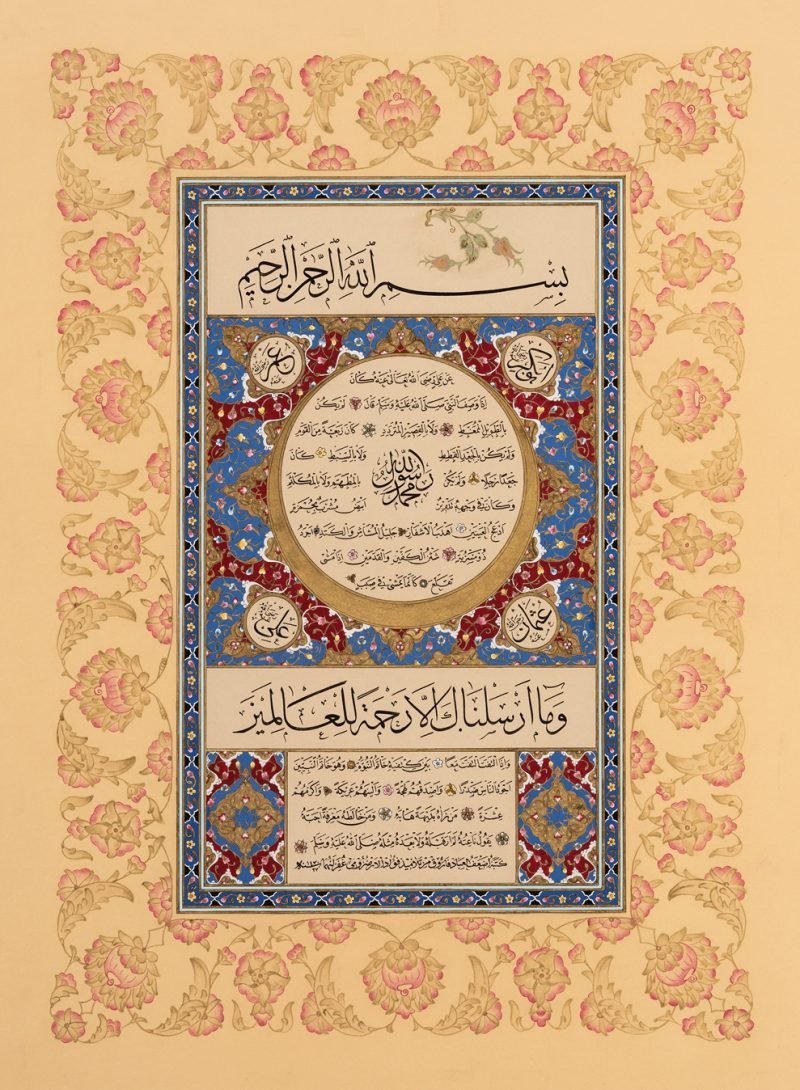 بِسْمِ اللّٰهِ الرَّحْمٰنِ الرَّحِيمِ
ابوبكر رضي الله عنه
عمر رضي الله عنه
عن علي رضى الله تعالى عنه كان
اذا وصف النبي صلى الله عليه وسلم قال لم يكن
بالطويل الممغط ولا بالقصير المتردد كان ربعة من القوم
ولم يكن بالجعد القطط ولا بالسبط كان
جعدا رجلا ولم يكن بالمطهم ولا بالمكلثم
محمد رسول الله
وكان في وجهه تدوير ابيض مشرب
ادعج العينين اهدب الاشفار جليل المشاش والكتد اجرد
ذو مسربة شثن الكفين والقدمين اذا مشى
تقلع كأنما يمشي في صبب
عثمان رضي الله عنه
علي رضي الله عنه
وَمَا أَرْسَلْنَاكَ إِلَّا رَحْمَةً لِلْعَالَمِينَ
واذا التفت التفت معا بين كتفيه خاتم النبوة وهو خاتم النبيين
اجود الناس صدرا واصدقهم لهجة والينهم عريكة واكرمهم
عشرة من رآه بديهة هابه ومن خالطه معرفة احبه
يقول ناعته لم ار قبله ولا بعده مثله صلى الله عليه وسلم
كتبه اضعف العباد من تلاميذ